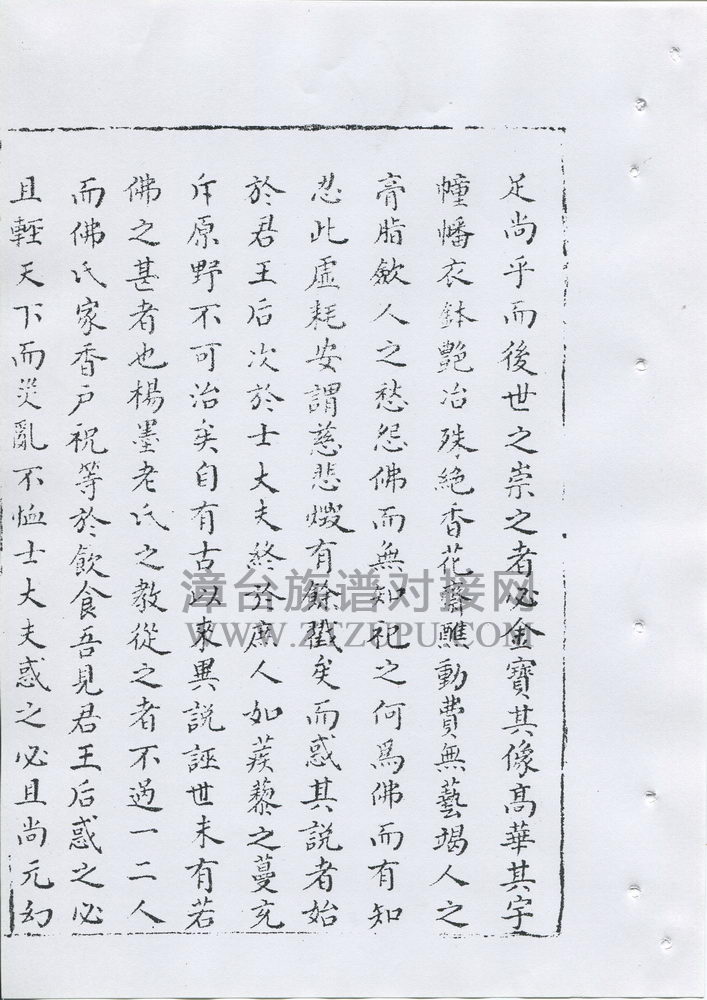 足尚乎而後世之崇之者必金寶其像高華其宇
幢幡衣鉢艷冶殊絕香花齋醮動費無藝竭人之
膏脂歛人之愁怨佛而無知祀之何爲佛而有知
忍此虛耗安謂慈悲燬有餘戮矣而惑其說者始
於君王后次於士大夫終於庶人如蒺藜之蔓充
斥原野不可治矣自有古以來異說誣世未有若
佛之甚者也楊墨老氏之教從之者不過一二人
而佛氏家香戶祝等於飲食吾見君王后惑之必
且輕天下而災亂不恤士大夫惑之必且尚元幻
漳台族谱对接网
WWW.ZTZUPU.COM